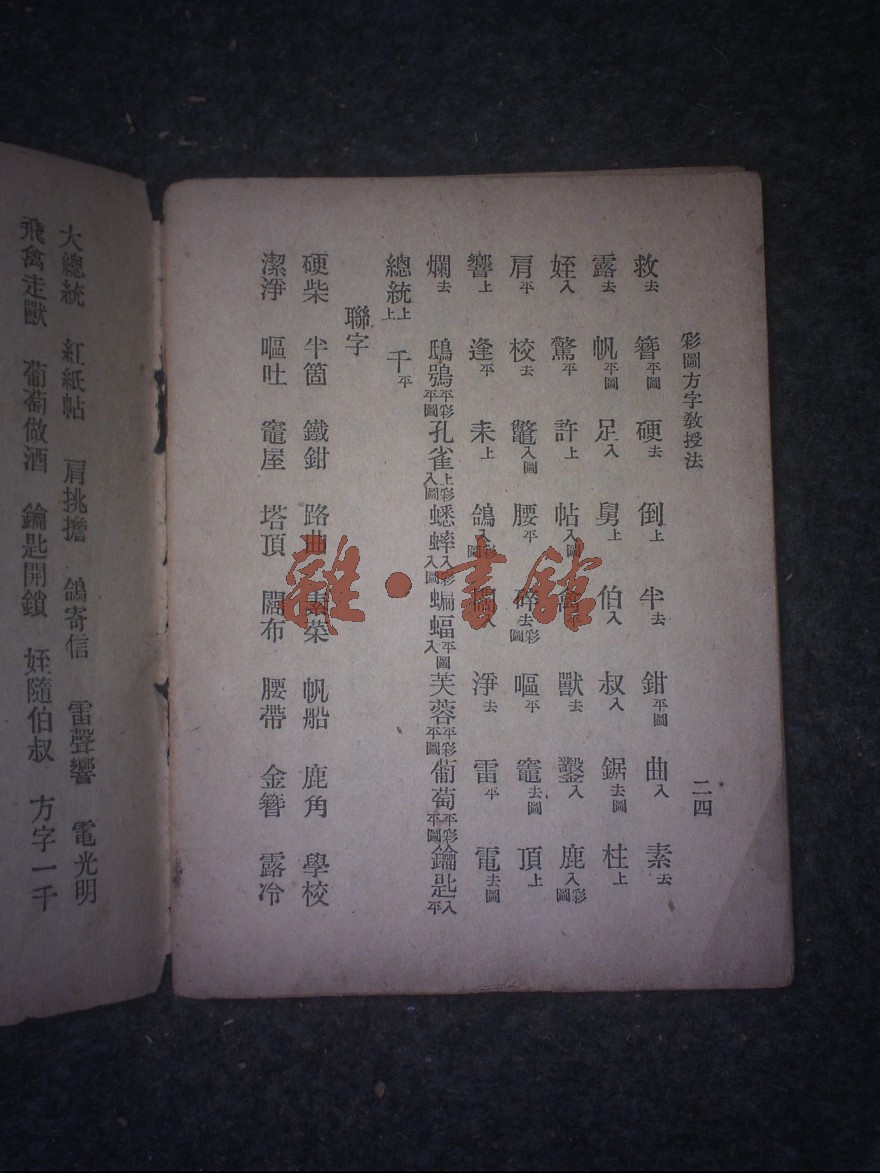 彩圖方字教授法 二四
救去 簪平圖 硬去 倒上 半去 鉗平圖 曲入 素去
露去 帆平圖 足入 舅上 伯入 叔入 鋸去圖 柱上
姪入 驚平 許上 帖入圖 禽平 獸去 鑿入 鹿入彩圖
肩平 校去 鼈入圖 腰平 碎去彩圖 嘔平 竈去圖 頂上
響上 逢平 耒上 鴿入彩圖 闊入 淨去 雷平 電去圖
爛去 鴟鴞平平彩圖 孔雀上入彩圖 蟋蟀入入彩圖 蝙蝠平入圖 芙蓉平平彩圖 葡萄平平彩圖 鑰匙入平
總統上上 千平
聯字
硬柴 半箇 鐵鉗 路曲 素菜 帆船 鹿角 學校
潔淨 嘔吐 竈屋 塔頂 闊布 腰帶 金簪 露冷
大總統 紅紙帖 肩挑擔 鴿寄信 雷聲響 電光明
飛禽走獸 葡萄做酒 鑰匙開鎖 姪隨伯叔 方字一千
雜·書館